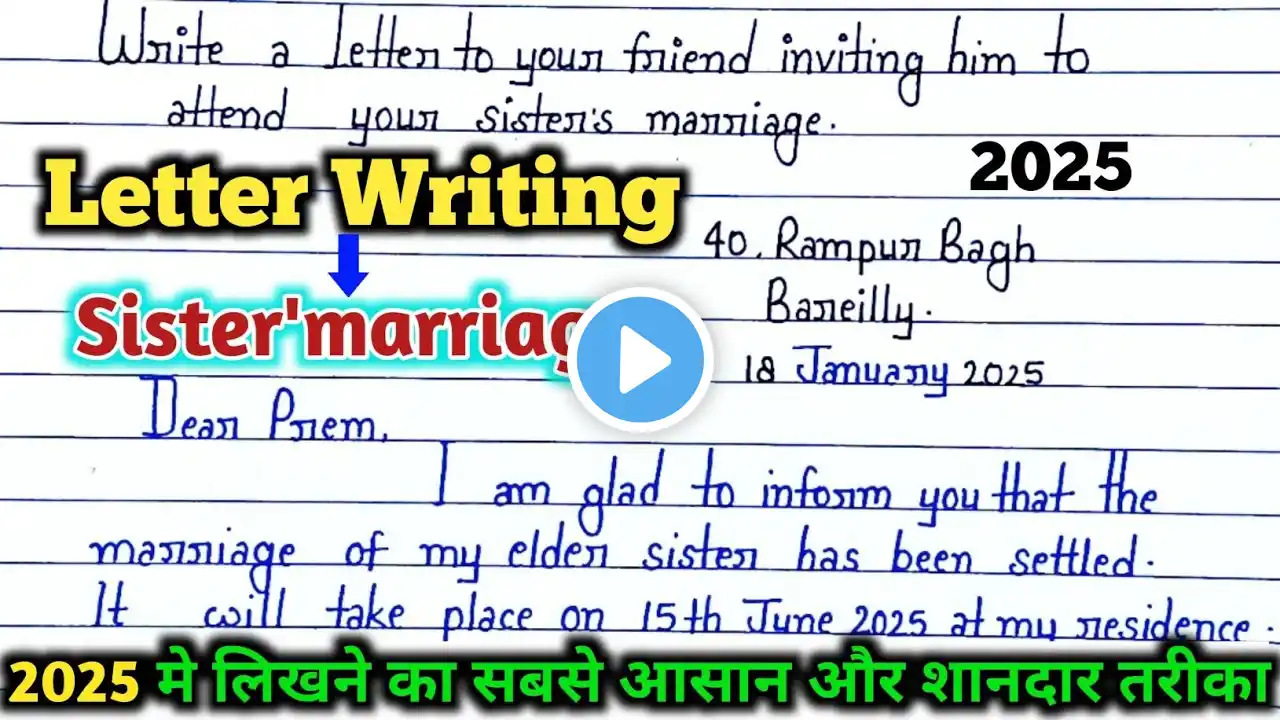 Write a letter to your friend inviting him to
attend your sister's marriage.
2025
Letter Writing
40, Rampur Bagh
Bareilly.
Sister'marriag
18 January 2025
Dear Prem,
I am glad to inform you that the
marriage of my elder sister has been settled.
It will take place on 15th June 2025 at my residence.
2025 मे लिखने का सबसे आसान और शानदार तरीका